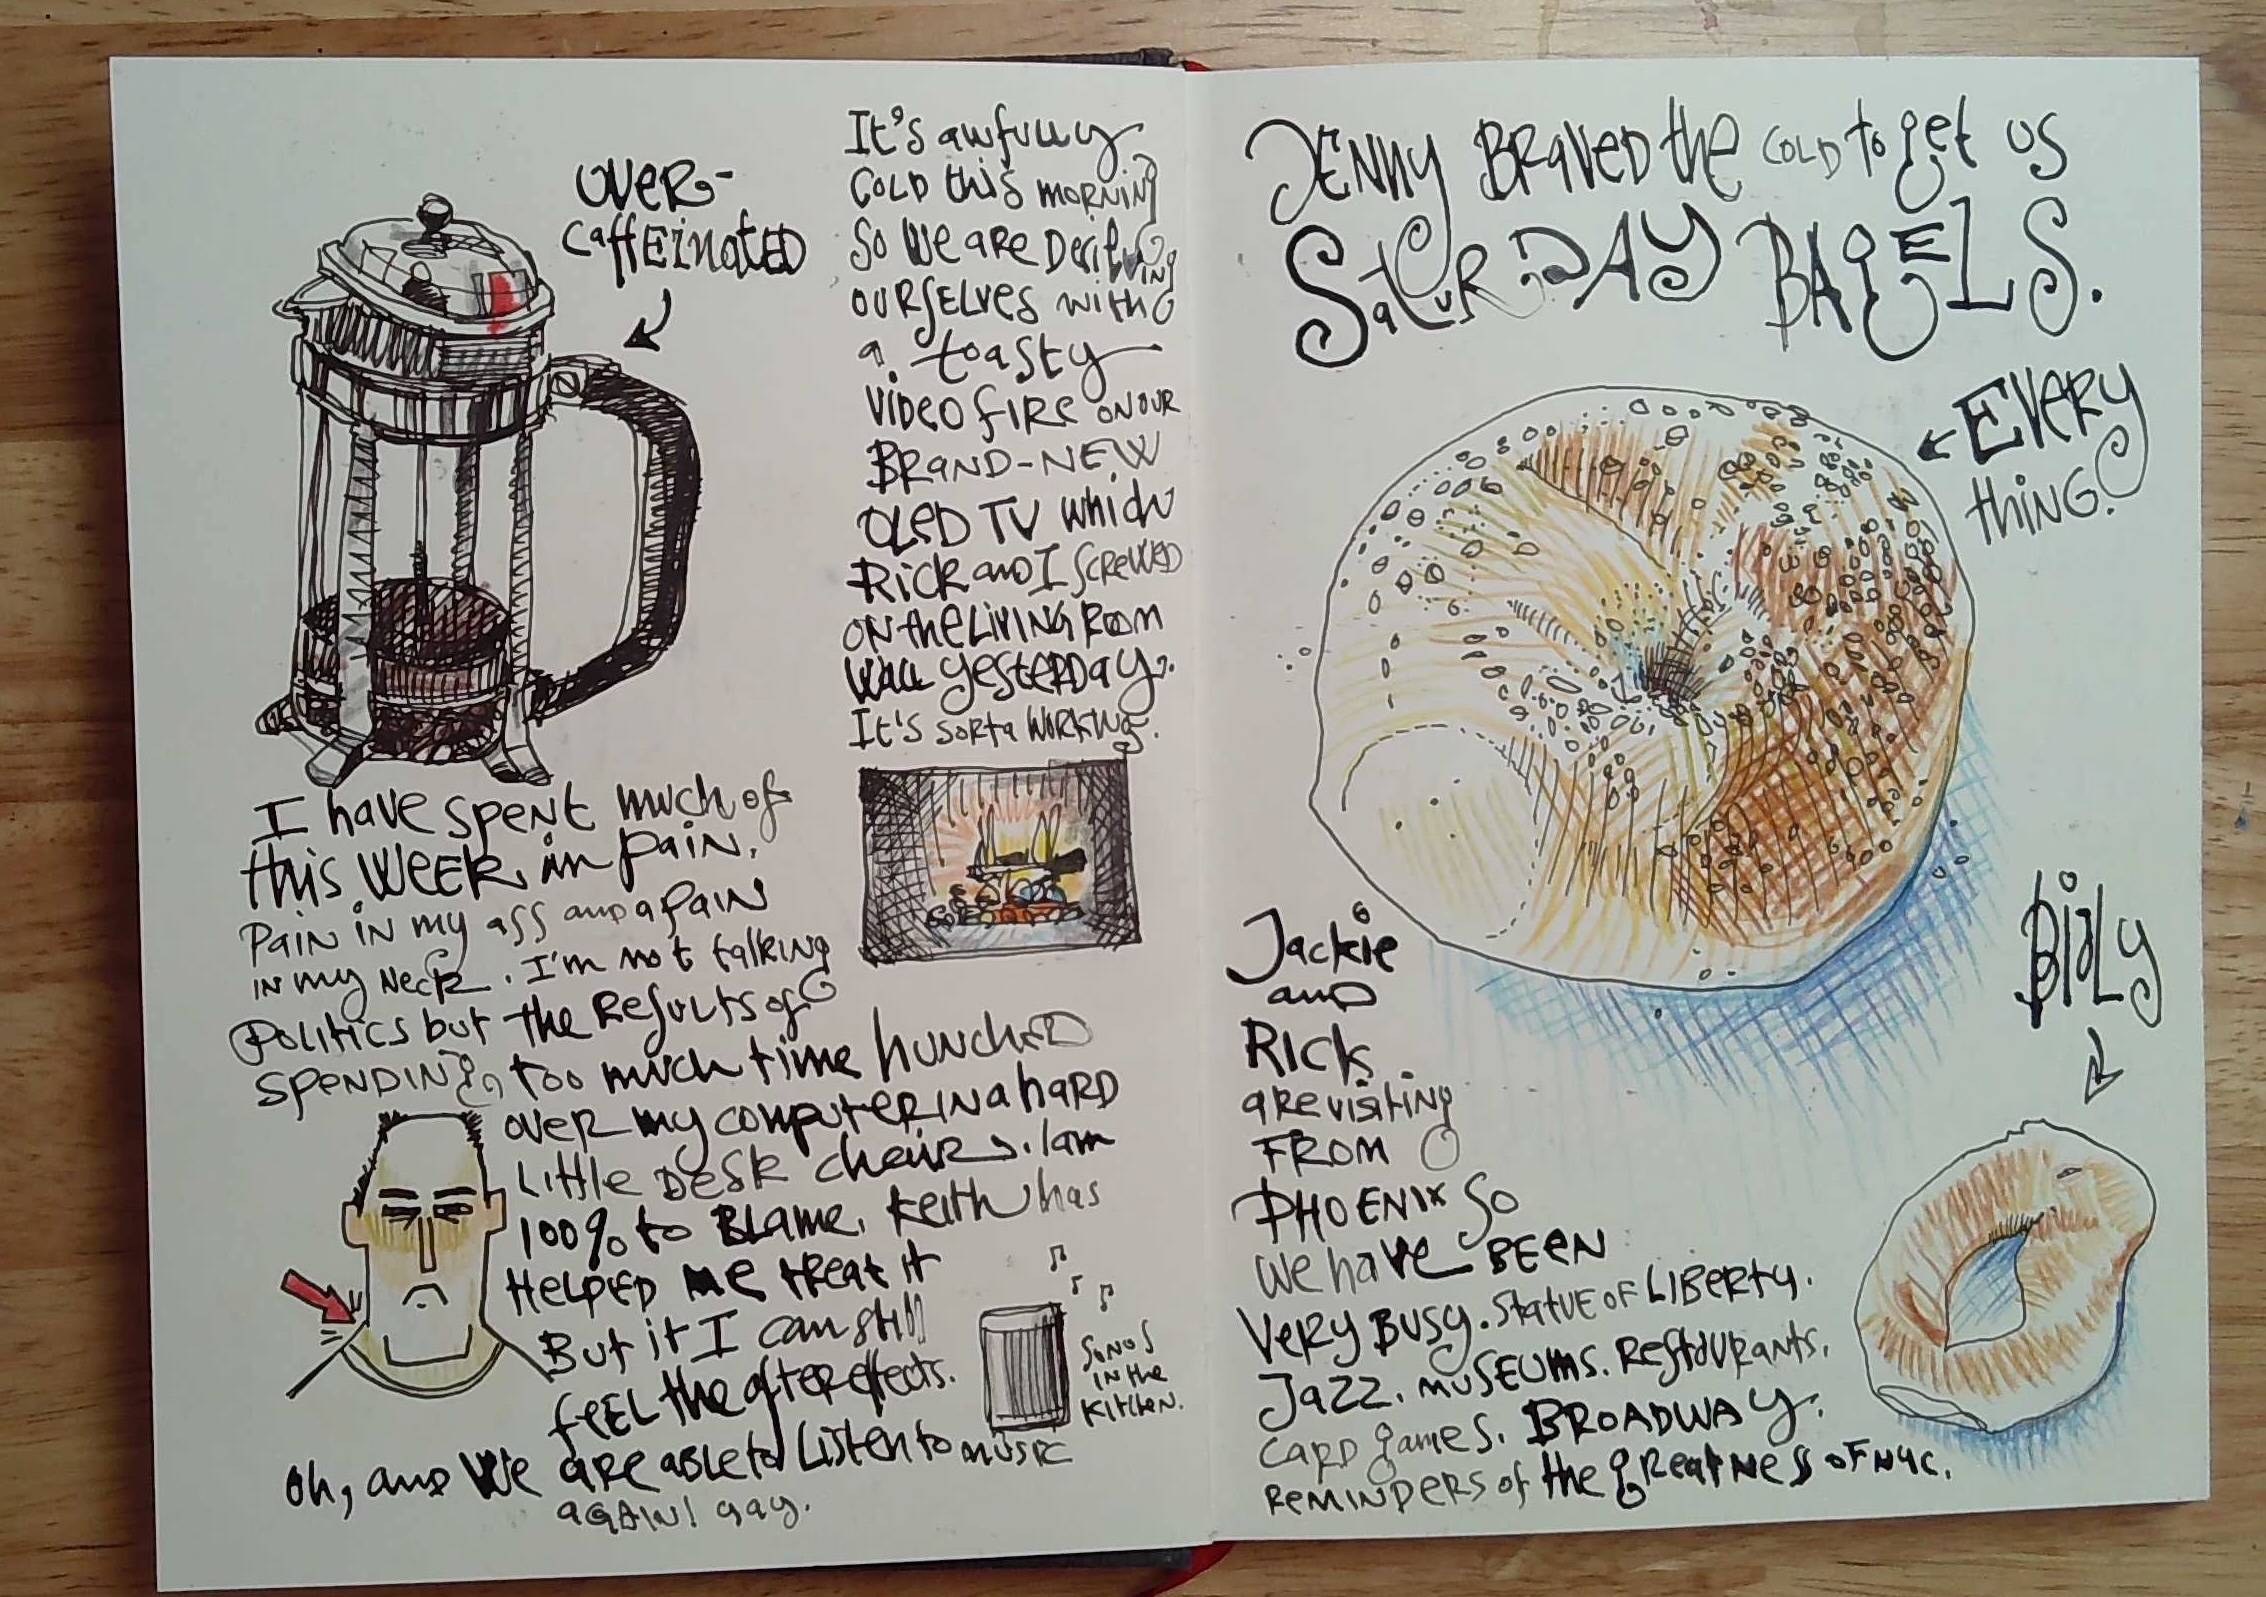 OVER-
CaffEinatED
It's awfully
COLD this MORNING
So We are Deriving
OURSELVES with
a toasty
VIDEO FIRE ON OUR
BRAND-NEW
OLED TV which
Rick and I SCREWED
ON the LIVING ROOM
WALL yesterday.
It's sorta WORKING.
I have spent much of
this WEEK in pain.
Pain in my ass and a PAIN
IN my NECK. I'm not talking
POLITICS but the Results of
SPENDING too much time hunchED
over my computer IN a hARD
Little DESK chair. I am
100% to BLAME. Keith has
HELPED me treat it
But it I can still
fEEL the after effects.
SONOS
IN the
KitchEN.
Oh, and We are able to Listen to music
AGAIN! yay.
JENNY BRAVED the COLD to get US
SatURDAY BAgELS.
EVERY
thING.
BiaLy
Jackie
and
RICK
are visiting
FROM
PHOENIX So
we have BEEN
VERY BUSY. STATUE OF LIBERTY.
JAZZ. MUSEUMS. REStaURANTS.
CARD games. BROADWAY.
REMINDERS of the greatNess of NYC.